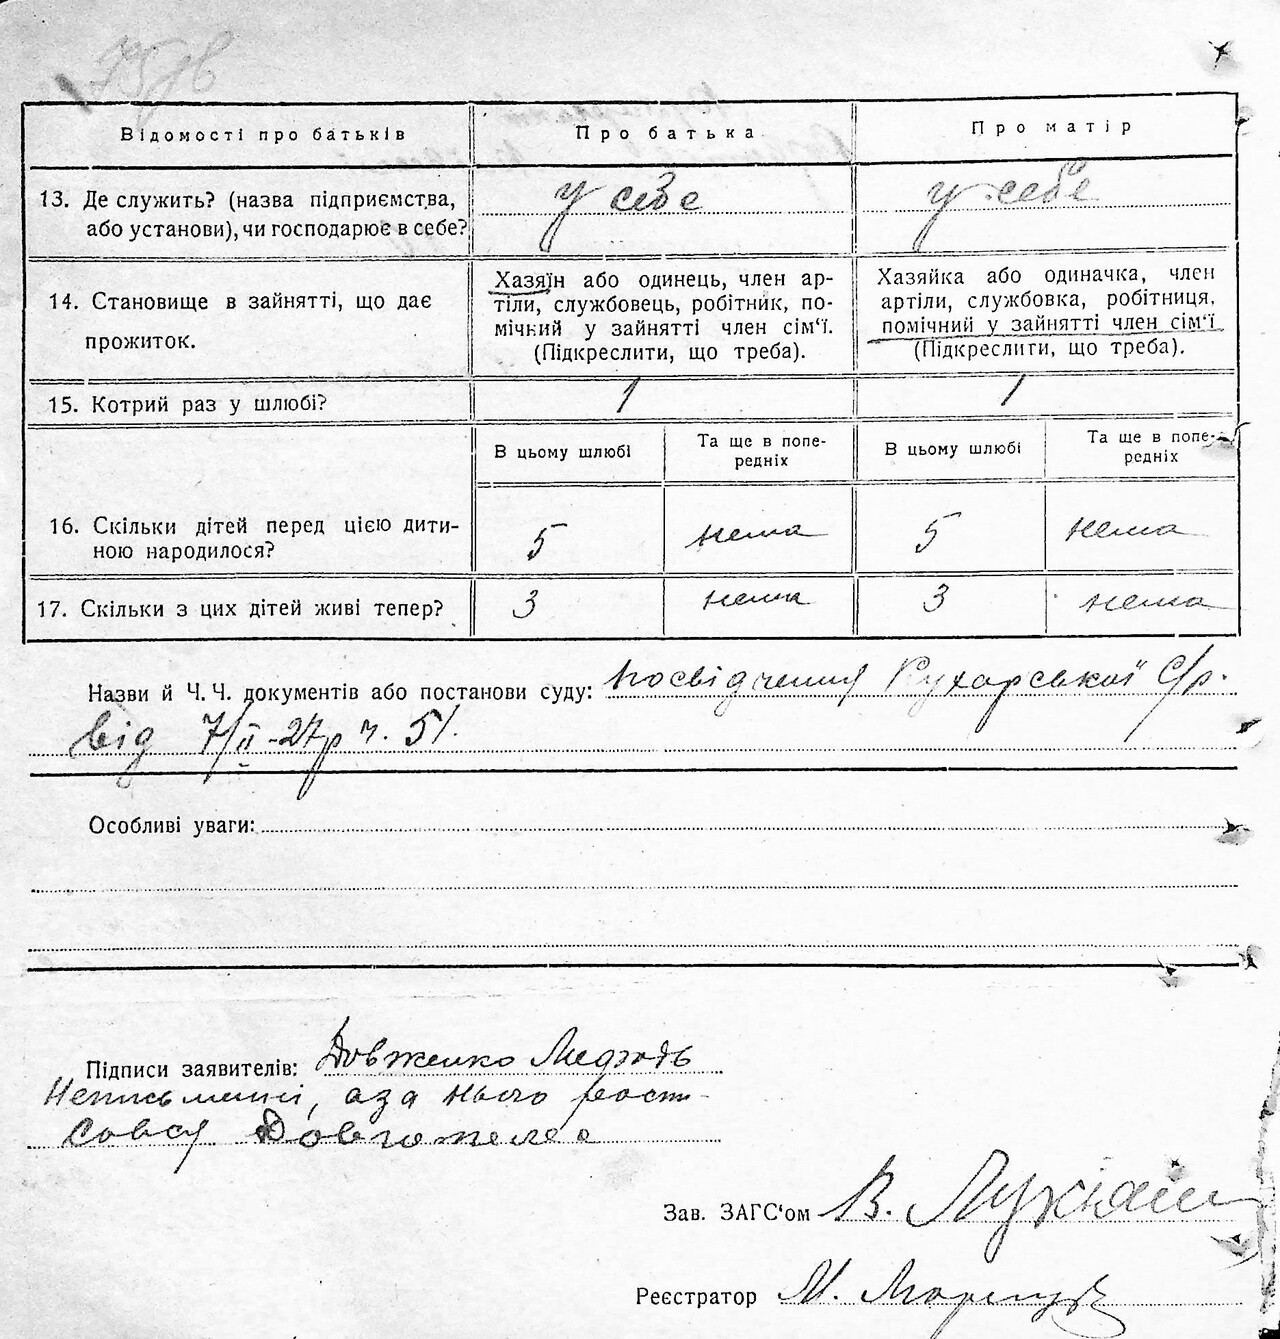 Відомості про батьків
Про батька
Про матір
13. Де служить? (назва підприємства,
або установи), чи господарює в себе?
у себе
у себе
14. Становище в зайнятті, що дає
прожиток.
Хазяїн або одинець, член ар-
тіли, службовець, робітник, по-
мічний у зайнятті член сім‘ї.
(Підкреслити, що треба).
Хазяйка або одиначка, член
артіли, службовка, робітниця,
помічний у зайнятті член сім‘ї
(Підкреслити, що треба).
15. Котрий раз у шлюбі?
1
1
В цьому шлюбі
Та ще в попе-
редніх
В цьому шлюбі
Та ще в попе-
редніх
16. Скільки дітей перед цією дити-
ною народилося?
5
нема
5
нема
17. Скільки з цих дітей живі тепер?
3
нема
3
нема
Назви й Ч. Ч. документів або постанови суду: посвідчення Кухарської С/р.
від 7/II-27р ч. 51.
Особливі уваги:
Підписи заявителів: Довженко
Неписьмений, а за нього розпи-
сався
Зав. ЗАГС‘ом В.
Реєстратор М.